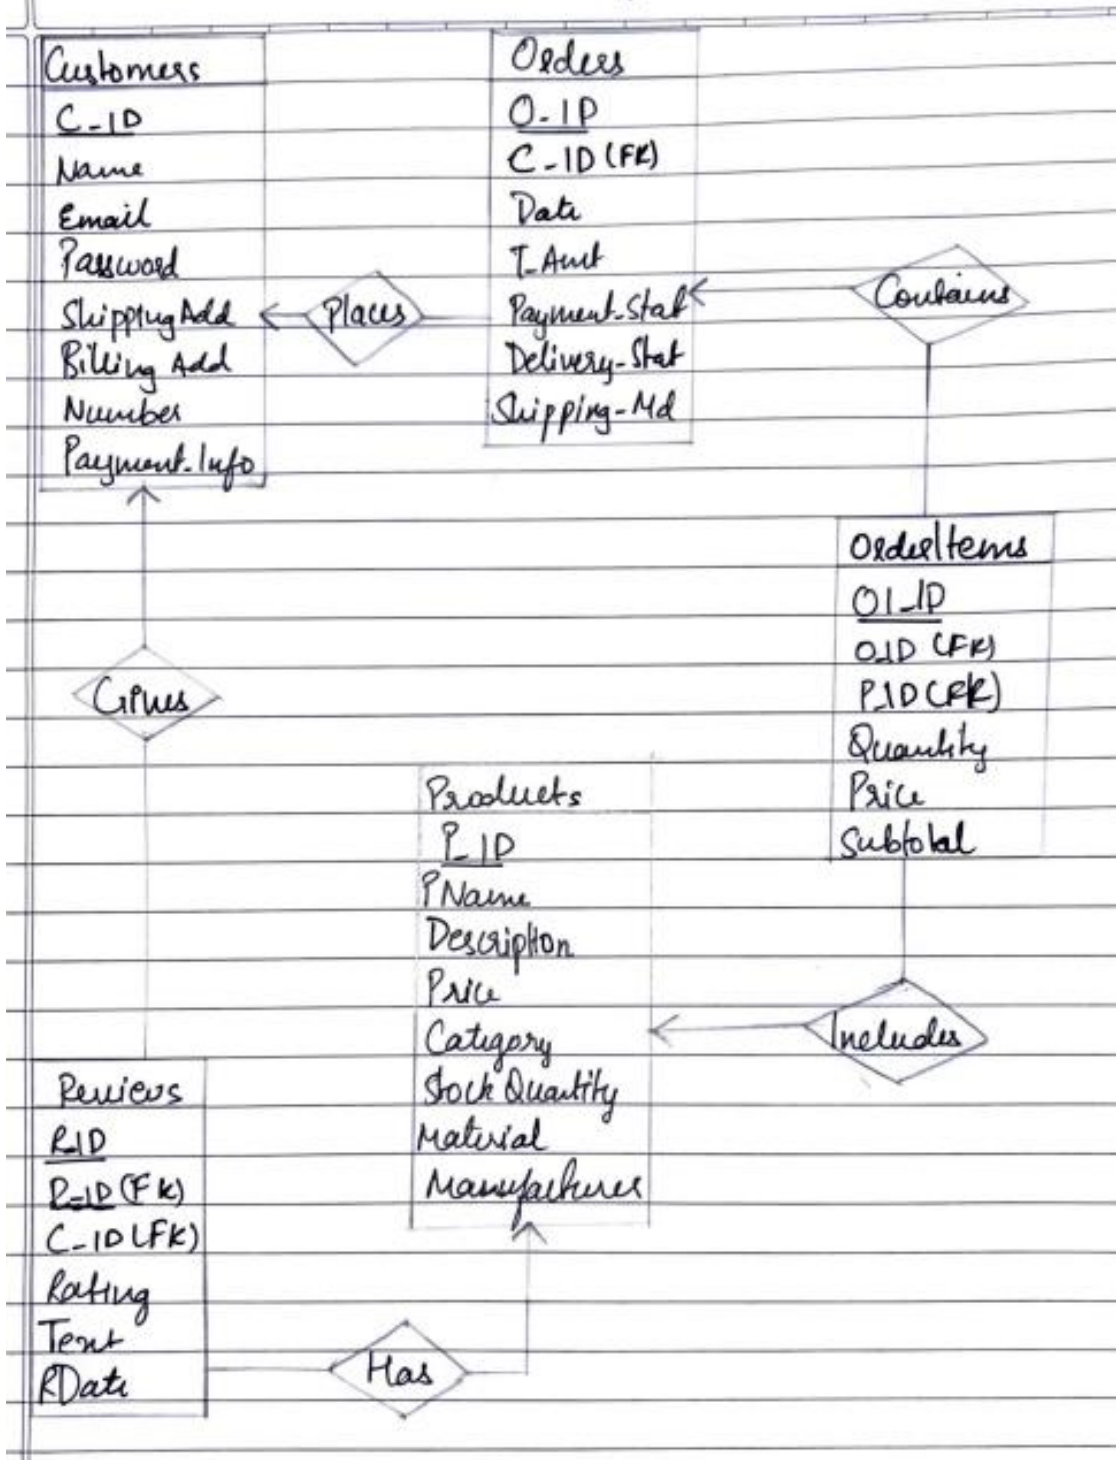 Customers
C_ID
Name
Email
Password
Shipping Add
Billing Add
Number
Payment_Info
Places
Orders
O_ID
C_ID (FK)
Date
T_Amt
Payment_Stat
Delivery_Stat
Shipping_Md
Contains
OrderItems
OI_ID
O_ID (FK)
P_ID (FK)
Quantity
Price
Subtotal
Gives
Products
P_ID
PName
Description
Price
Category
Stock Quantity
Material
Manufacturer
Includes
Reviews
R_ID
P_ID (FK)
C_ID (FK)
Rating
Text
RDate
Has